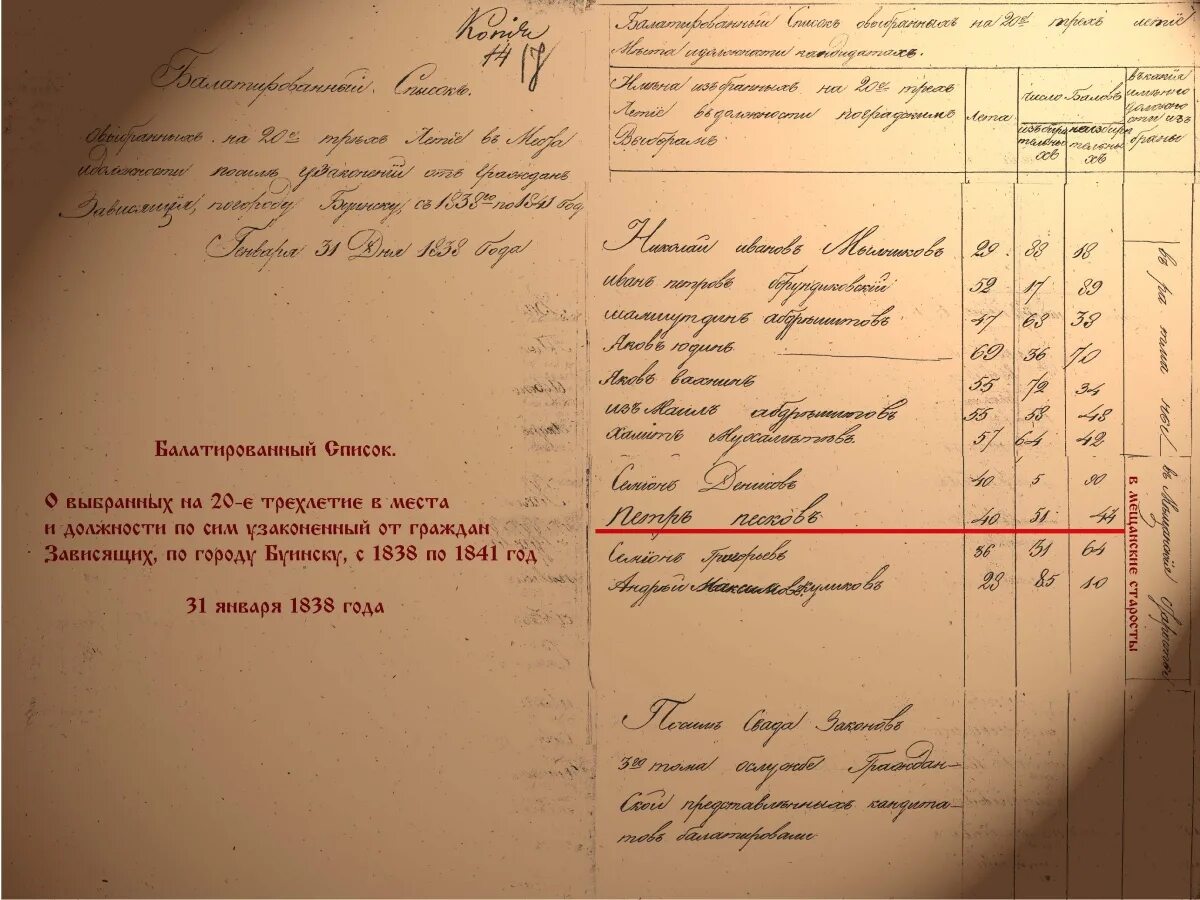 Копия
14 17
Балатированный Списокъ.
овыбранныхъ на 20е трехъ Летіе въ Места
идолжности посимъ узаконеній отъ граждан
Зависящія, погороду Буинску, съ 1838го по 1841 Год
Генваря 31 Дня 1838 Года
Балатированный Список.
О выбранных на 20-е трехлетие в места
и должности по сим узаконенный от граждан
Зависящих, по городу Буинску, с 1838 по 1841 год
31 января 1838 года
Балатированный Списокъ овыбранныхъ на 20е трехъ летіе
Места идолжности кандидатахъ.
Имѣна избранныхъ на 20е трехъ
Летіе въдолжности поградскимъ
Выборамъ
Лета
число Баловъ
избирательныхъ
неизбирательныхъ
въкакія имянно должности избраны
Николай ивановъ Мыльниковъ 29 88 18
иванъ петровъ бурундуковскій 52 17 89
шамшутдинъ абдряшитовъ 47 63 33
Яковъ юдинъ 69 36 70
Яковъ вахнинъ 55 72 34
измаилъ абдряшитовъ 55 58 48
Халитъ Мухаметевъ 57 64 42
въ ратманы
Семіонъ Дениковъ 40 5 90
Петръ песковъ 40 51 44
Семіонъ Григорьевъ 36 31 64
Андрей Максимовъ куликовъ 23 85 10
въ Мещанскіе старосты
в мещанские старосты
Посимъ Свода Законовъ
3го тома ослужбе Граждан-
Ской представленныхъ кандита-
товъ балатировали